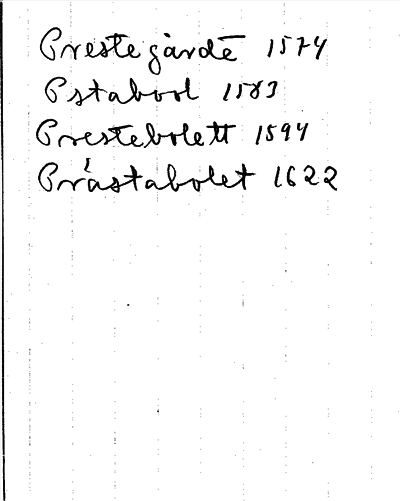 Prestegårdē 1574
Pstabool 1583
Prestebolett 1594
Prástabolet 1622